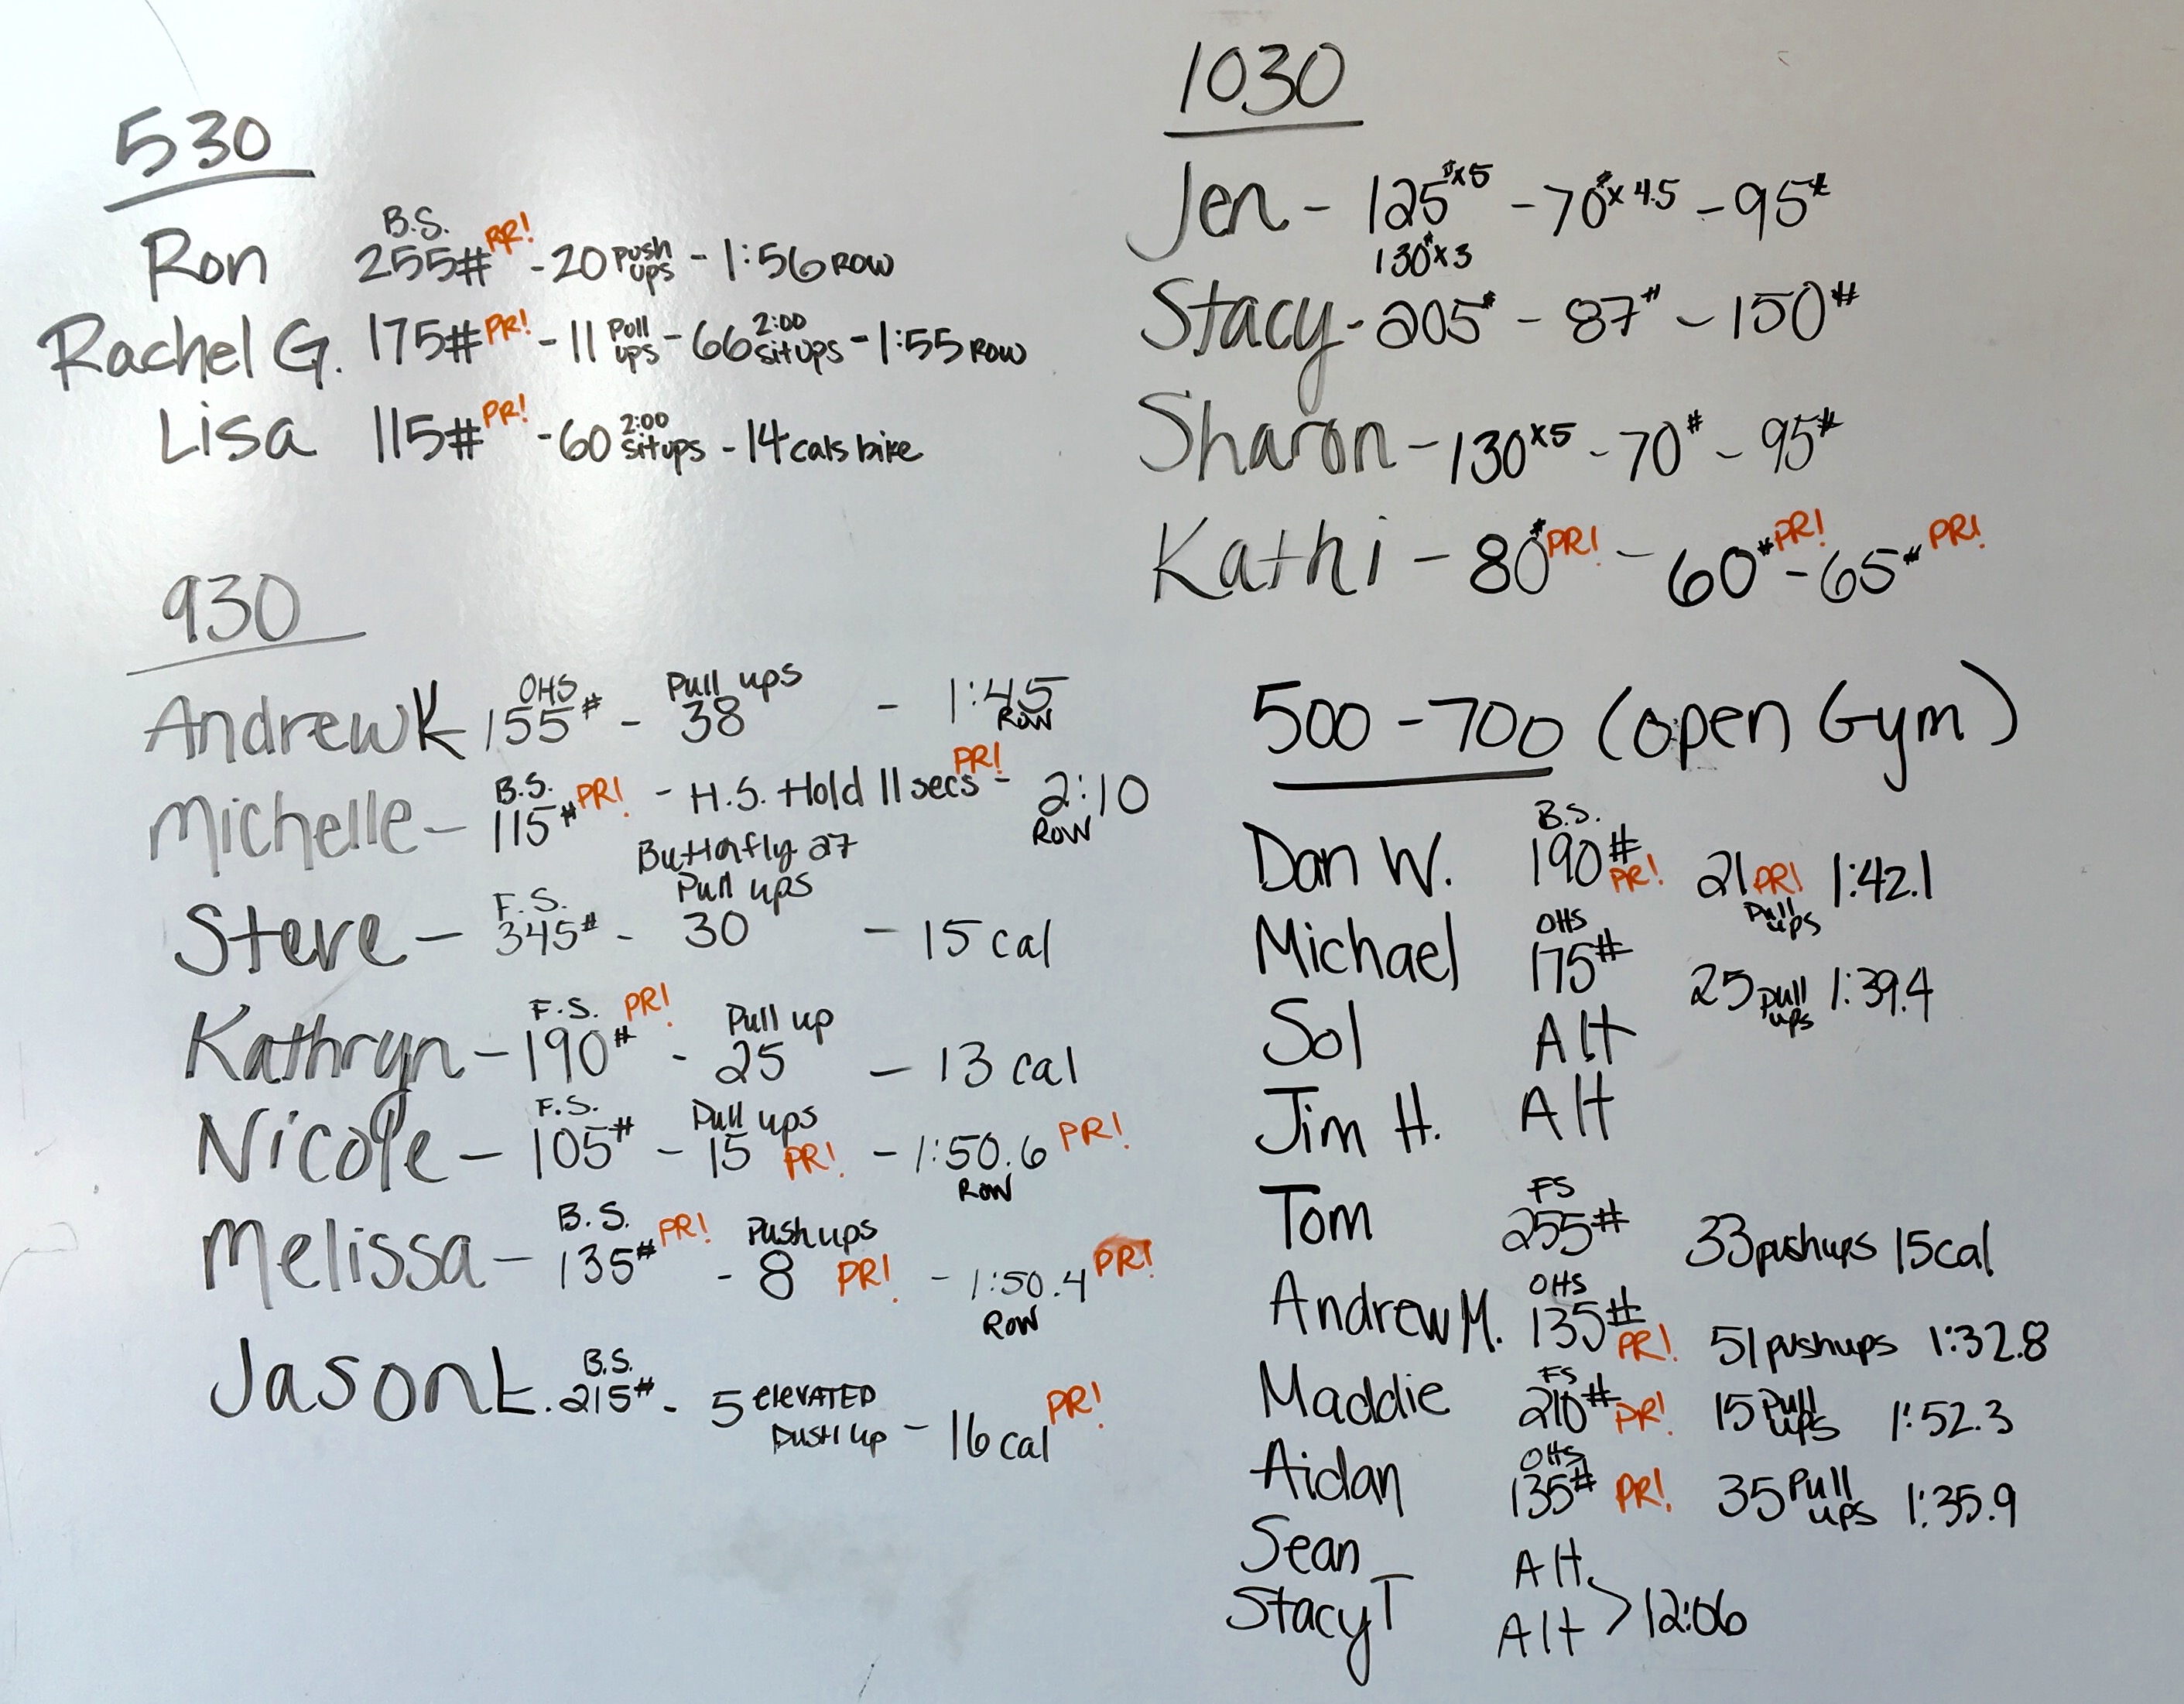 530
Ron B.S. 255# PR! - 20 push ups - 1:56 ROW
Rachel G. 175# PR! - 11 Pull ups - 66 2:00 situps - 1:55 ROW
Lisa 115# PR! - 60 2:00 situps - 14 cals bike
930
Andrew K 155# OHS - 38 Pull ups - 1:45 ROW
Michelle - B.S. 115# PR! - H.S. Hold 11 secs PR! - 2:10 ROW
Steve - F.S. 345# - Butterfly 27 Pull ups 30 - 15 cal
Kathryn - F.S. 190# PR! - Pull up 25 - 13 cal
Nicole - F.S. 105# - Pull ups 15 PR! - 1:50.6 ROW PR!
Melissa - B.S. 135# PR! - Push ups 8 PR! - 1:50.4 ROW PR!
Jason L. B.S. 215# - 5 elevATED PUSH up - 16 cal PR!
1030
Jen - 125# x5 - 70# x 4.5 - 95#
130# x3
Stacy - 205# - 87# - 150#
Sharon - 130 x5 - 70# - 95#
Kathi - 80# PR! - 60# PR! - 65# PR!
500 - 700 (open Gym)
Dan W. B.S. 190# PR! 21 PR! Pull ups 1:42.1
Michael OHS 175# 25 pull ups 1:39.4
Sol Alt
Jim H. Alt
Tom FS 255# 33 pushups 15 cal
Andrew M. OHS 135# PR! 51 pushups 1:32.8
Maddie FS 210# PR! 15 Pull ups 1:52.3
Aidan OHS 135# PR! 35 Pull ups 1:35.9
Sean Alt
Stacy T Alt > 12:06